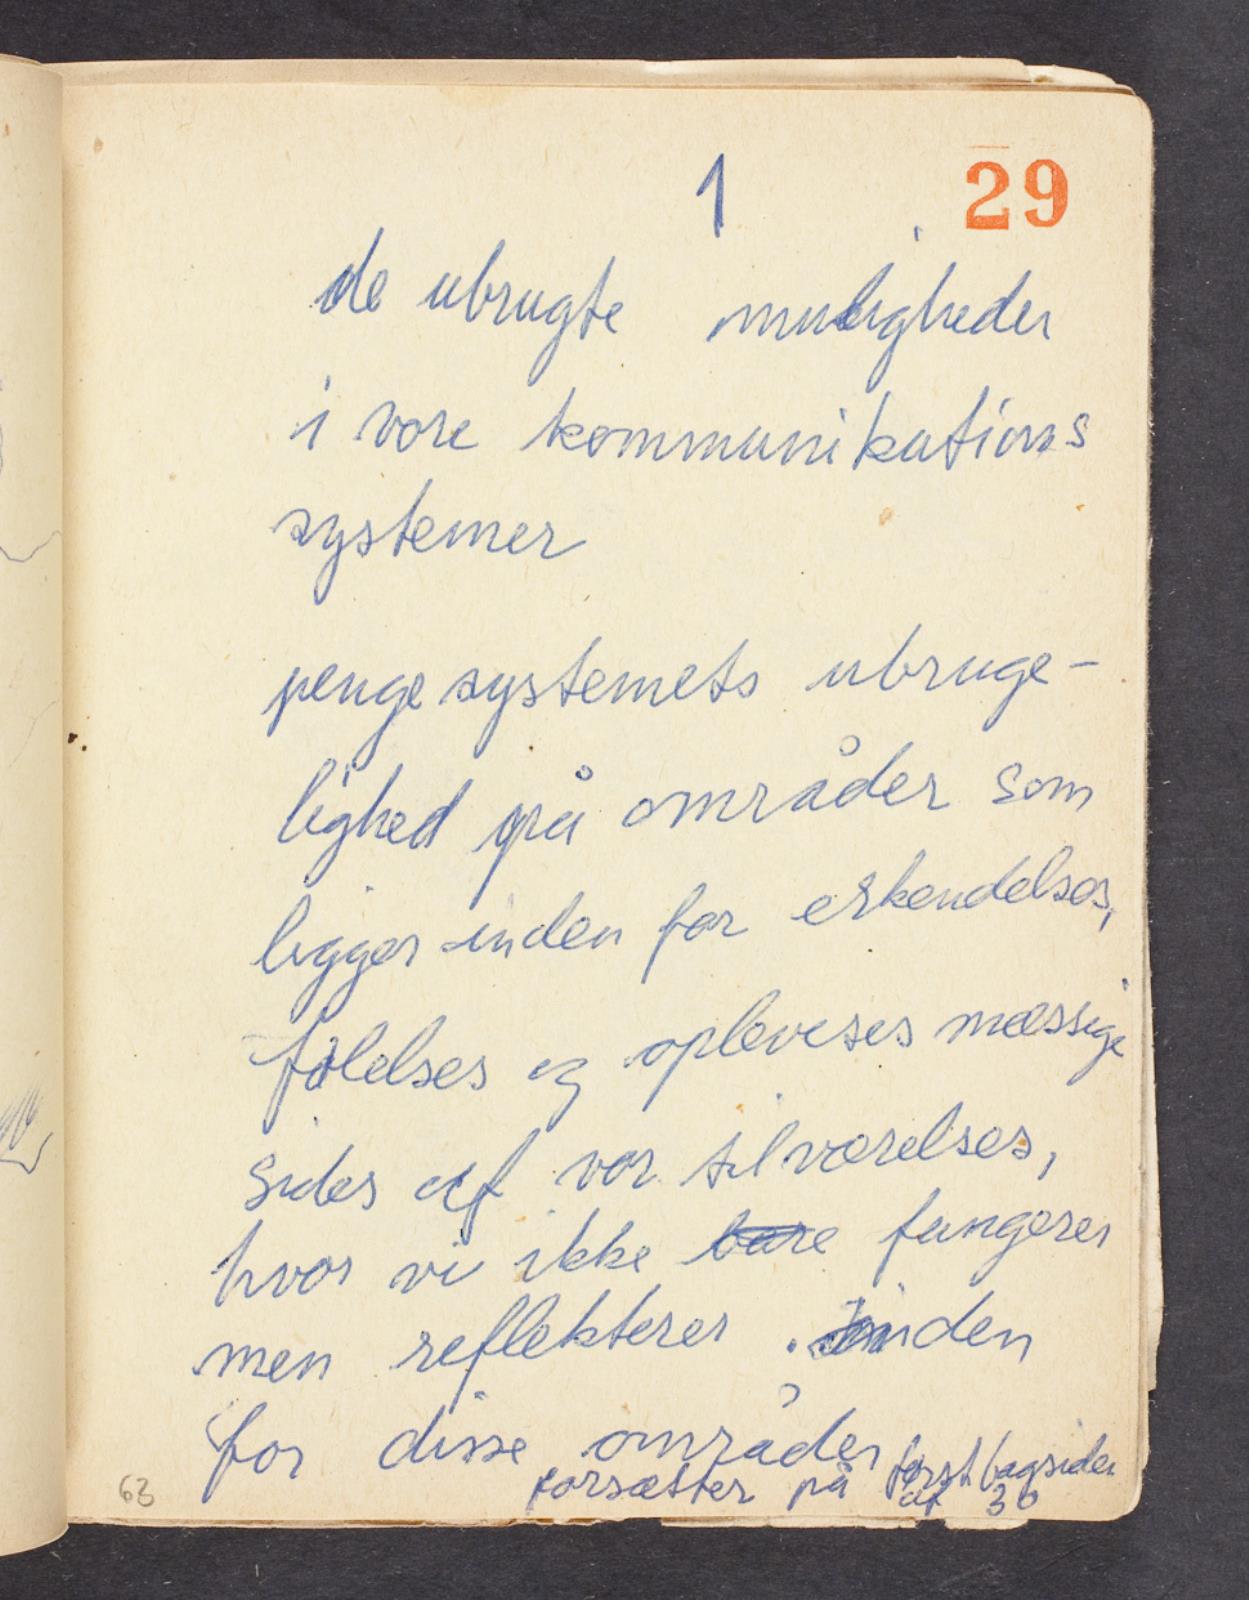 1 29
de ubrugte muligheder
i vore kommunikations
systemer
penge systemets ubruge-
lighed på områder som
ligger inden for erkendelses,
følelses og opleveses mæssige
sider af vor tilværelses,
hvor vi ikke bare fungerer
men reflekterer . inden
for disse områder
forsætter på først bagsiden
af 30
63